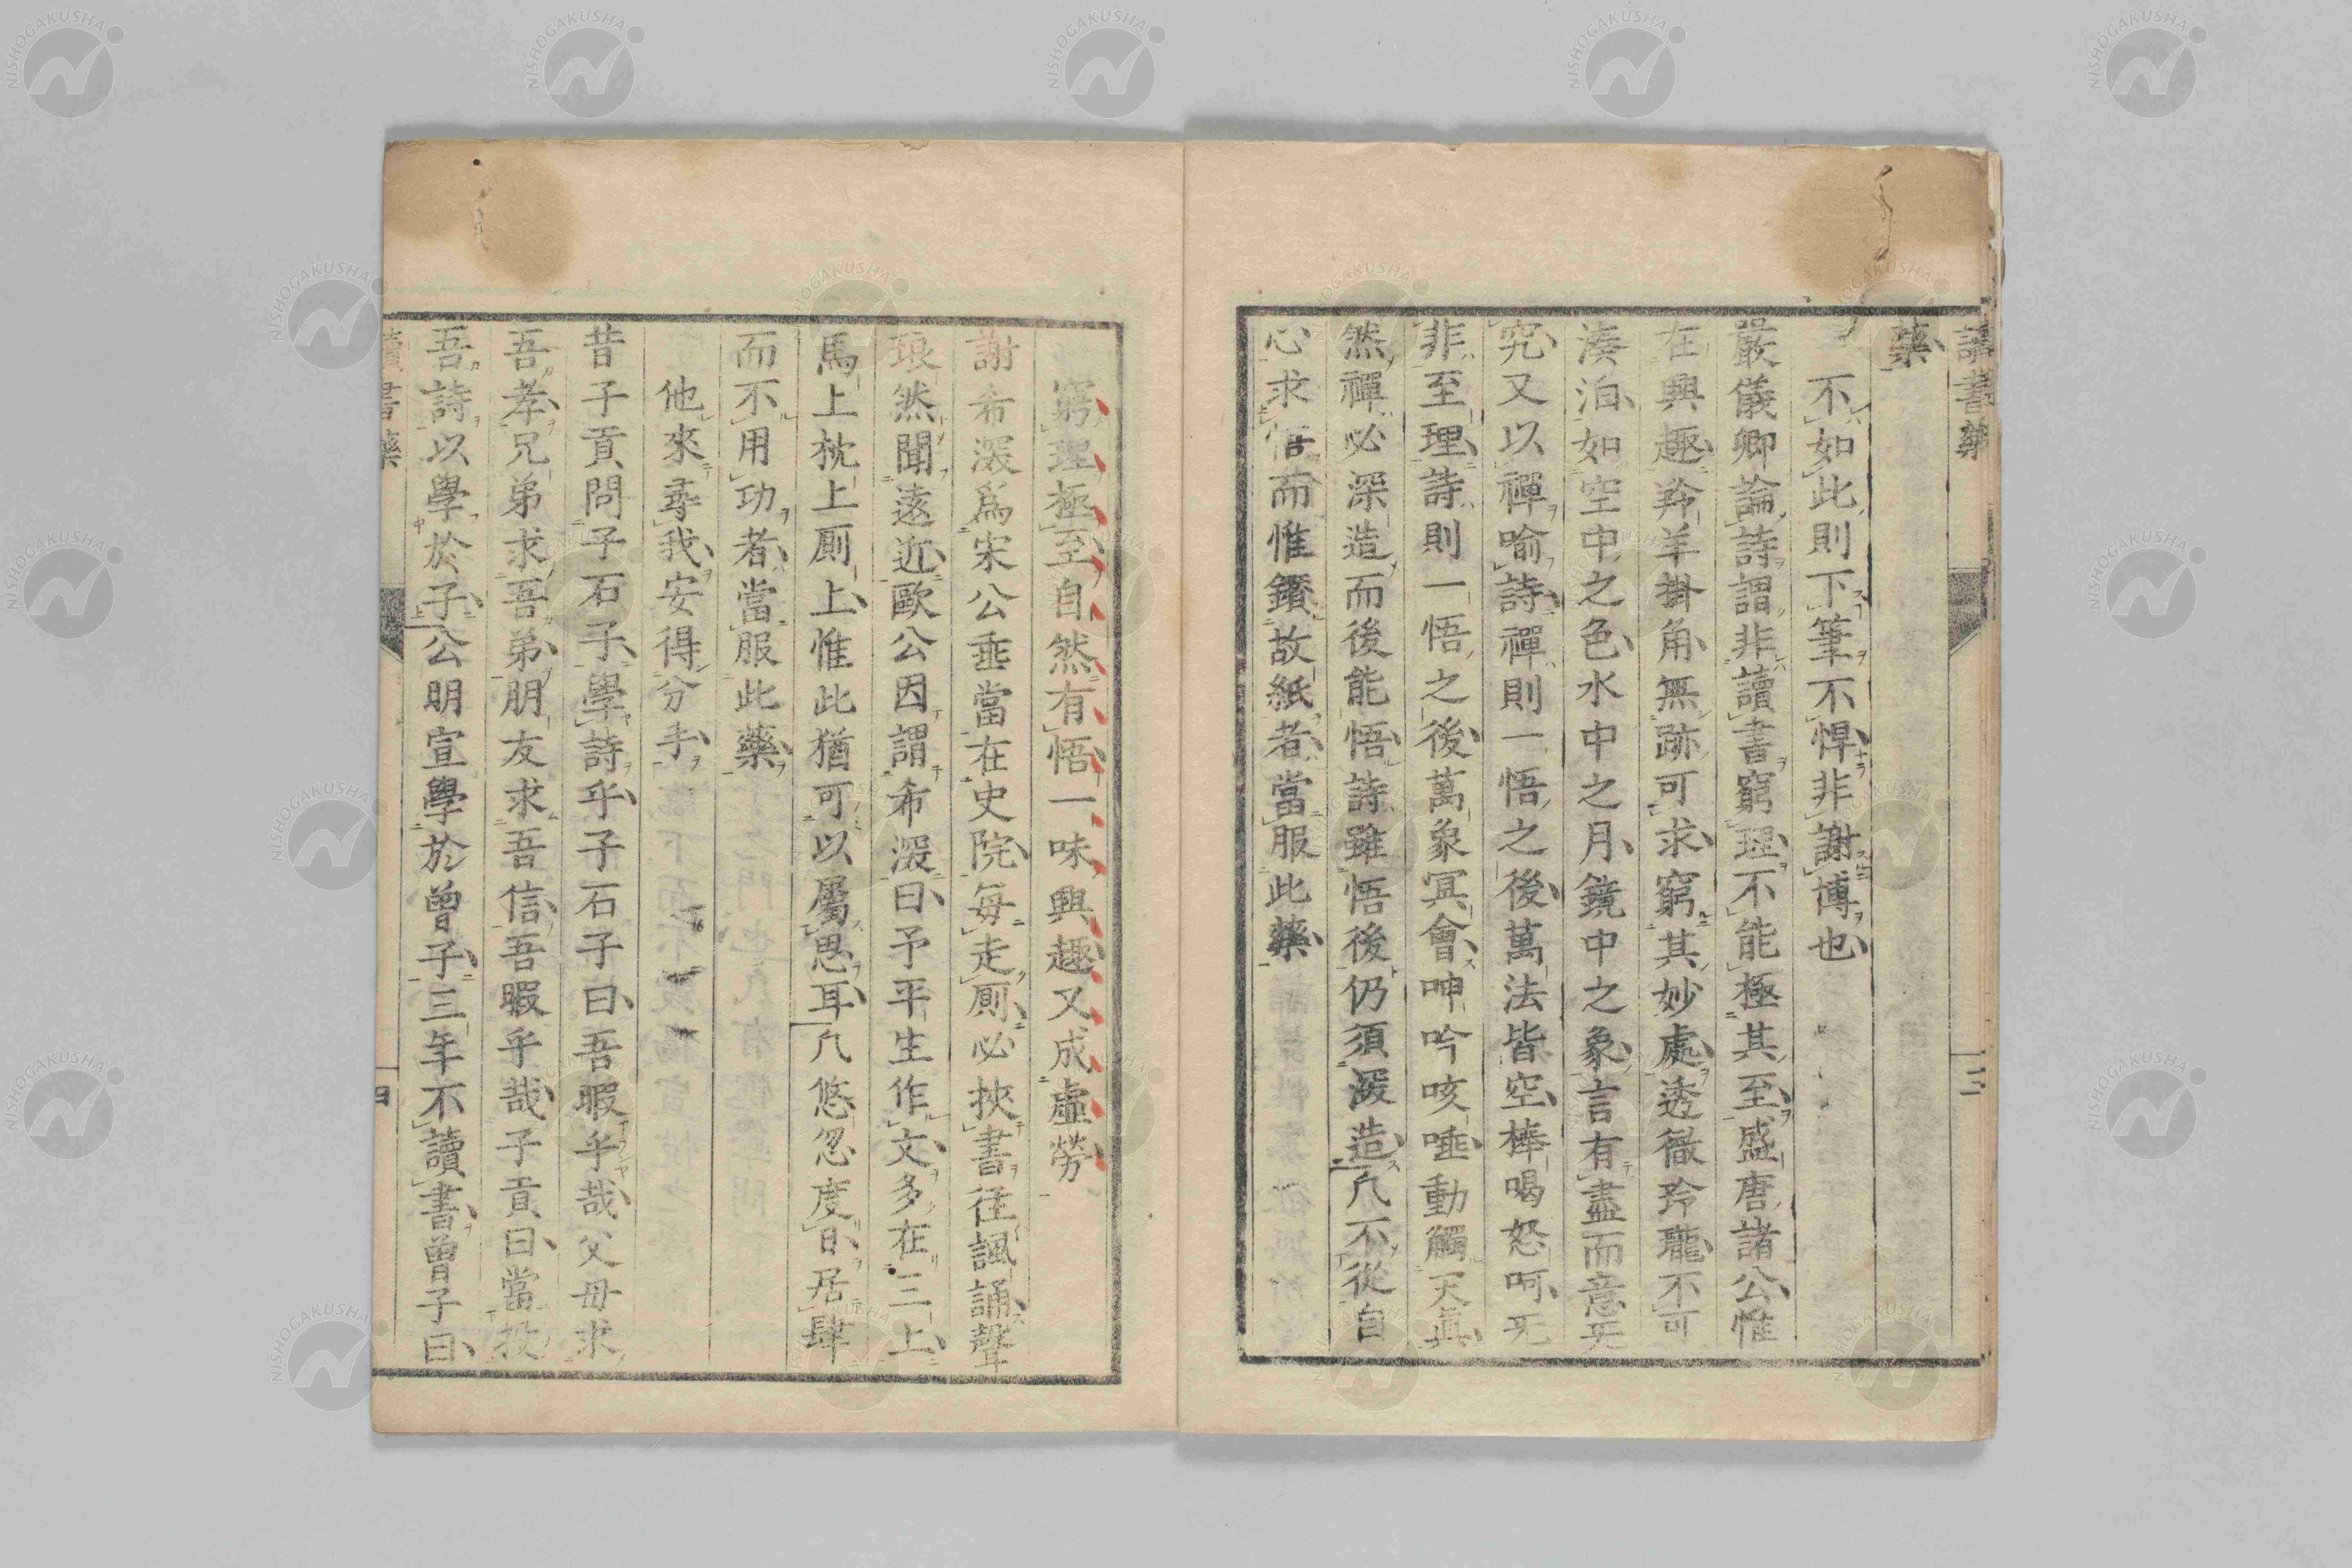 讀書藥
三
藥
不如此則下筆不悍非謝博也
嚴儀卿論詩謂非讀書窮理不能極其至盛唐諸公惟
在興趣羚羊掛角無跡可求窮其妙處透徹玲瓏不可
湊泊如空中之色水中之月鏡中之象言有盡而意无
究又以禪喻詩禪則一悟之後萬法皆空棒喝怒呵无
非至理詩則一悟之後萬象冥會呻吟咳唾動觸天眞
然禪必深造而後能悟詩雖悟後仍須深造凡不從自
心求悟而惟鑽故紙者當服此藥
窮理極至自然有悟一味興趣又成虛勞
謝希深爲宋公垂當在史院每走厠必挾書徃諷誦聲
琅然聞遠近歐公因謂希深曰予平生作文多在三上
馬上枕上厠上惟此猶可以屬思耳凡悠忽度日居肆
而不用功者當服此藥
他來尋我安得分手
昔子貢問子石子學詩乎子石子曰吾暇乎哉父母求
吾孝兄弟求吾弟朋友求吾信吾暇乎哉子貢曰當投
吾詩以學於子公明宣學於曾子三年不讀書曾子曰
讀書藥
四
NISHOGAKUSHA